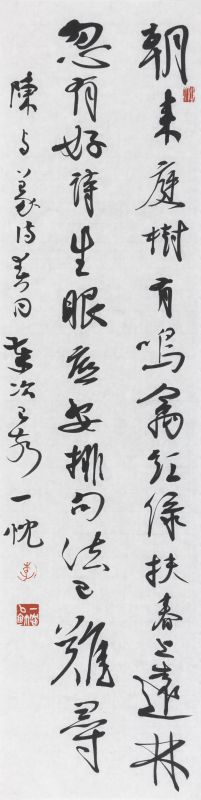 朝来庭樹有鳴禽紅綠扶春上遠林
忽有好詩生眼底安排句法已難尋
陳与義詩春日 一忱